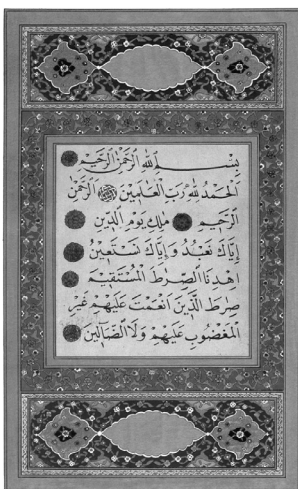 بِسْمِ اللّٰهِ الرَّحْمٰنِ الرَّحِيمِ
اَلْحَمْدُ لِلّٰهِ رَبِّ الْعَالَمِينَ اَلرَّحْمٰنِ
الرَّحِيمِ مٰلِكِ يَوْمِ الدِّينِ
اِيَّاكَ نَعْبُدُ وَاِيَّاكَ نَسْتَعِينُ
اِهْدِنَا الصِّرَاطَ الْمُسْتَقِيمَ
صِرَاطَ الَّذِينَ اَنْعَمْتَ عَلَيْهِمْ غَيْرِ
الْمَغْضُوبِ عَلَيْهِمْ وَلَا الضَّالِّينَ